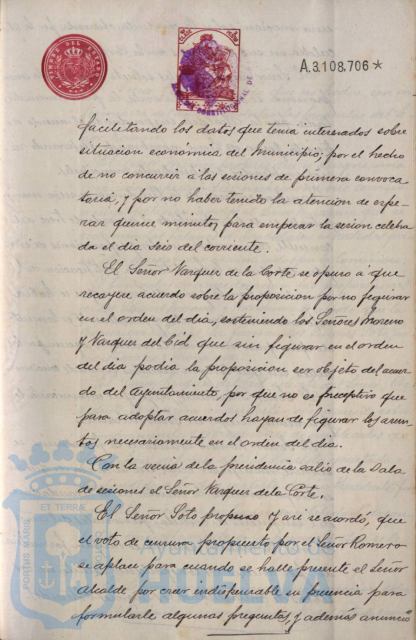 TIMBRE DEL ESTADO
A.3.108.706*
CONSTITUCIONAL DE
facilitando los datos que tenia interesados sobre
situacion económica del Municipio; por el hecho
de no concurrir á las sesiones de primera convoca
toria, y por no haber tenido la atencion de espe-
rar quince minutos para empezar la sesion celebra
da el dia seis del corriente.
El Señor Vazquez de la Corte se opuso á que
recayese acuerdo sobre la proposicion por no figurar
en el orden del dia, sosteniendo los Señores Moreno
y Vazquez del Cid que sin figurar en el orden
del dia podia la proposicion ser objeto del acuer
do del Ayuntamiento, por que no es preceptivo que
para adoptar acuerdos hayan de figurar los asun
tos necesariamente en el orden del dia.
Con la venia de la presidencia salió de la Sala
de sesiones el Señor Vazquez de la Corte.
El Señor Soto propuso y asi se acordó, que
el voto de censura propuesto por el Señor Romero
se aplace para cuando se halle presente el Señor
Alcalde por creer indispensable su presencia para
formularle algunas preguntas, y además anunció
PORTUS MARIS ET TERRAE
Ayuntamiento de
HUELVA